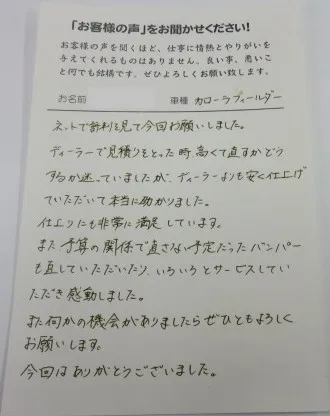 「お客様の声」をお聞かせください!
お客様の声を聞くほど、仕事に情熱とやりがいを
与えてくれるものはありません。良い事、悪いこ
と何でも結構です。ぜひよろしくお願い致します。
お名前 車種 カローラフィールダー
ネットで評判を見て今回お願いしました。
ディーラーで見積りをとった時、高くて直すかどう
するか迷っていましたが、ディーラーよりも安く仕上げ
ていただいて本当に助かりました。
仕上りにも非常に満足しています。
また予算の関係で直さない予定だったバンパー
も直していただいたり、いろいろとサービスしてい
ただき感動しました。
また何かの機会がありましたらぜひともよろしく
お願いします。
今回はありがとうございました。